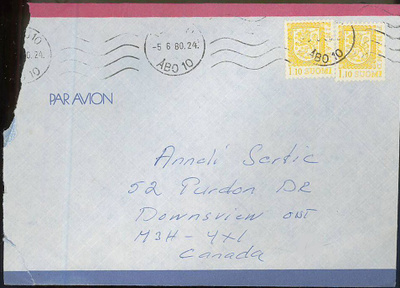 10
-5.6.80.24.
ÅBO 10
6.24.
10
ÅBO 10
1.10 SUOMI
1.10 SUOMI
PAR AVION
Anneli Sartic
52 Purdon DR
Downsview ONT
M3H-4X1
Canada